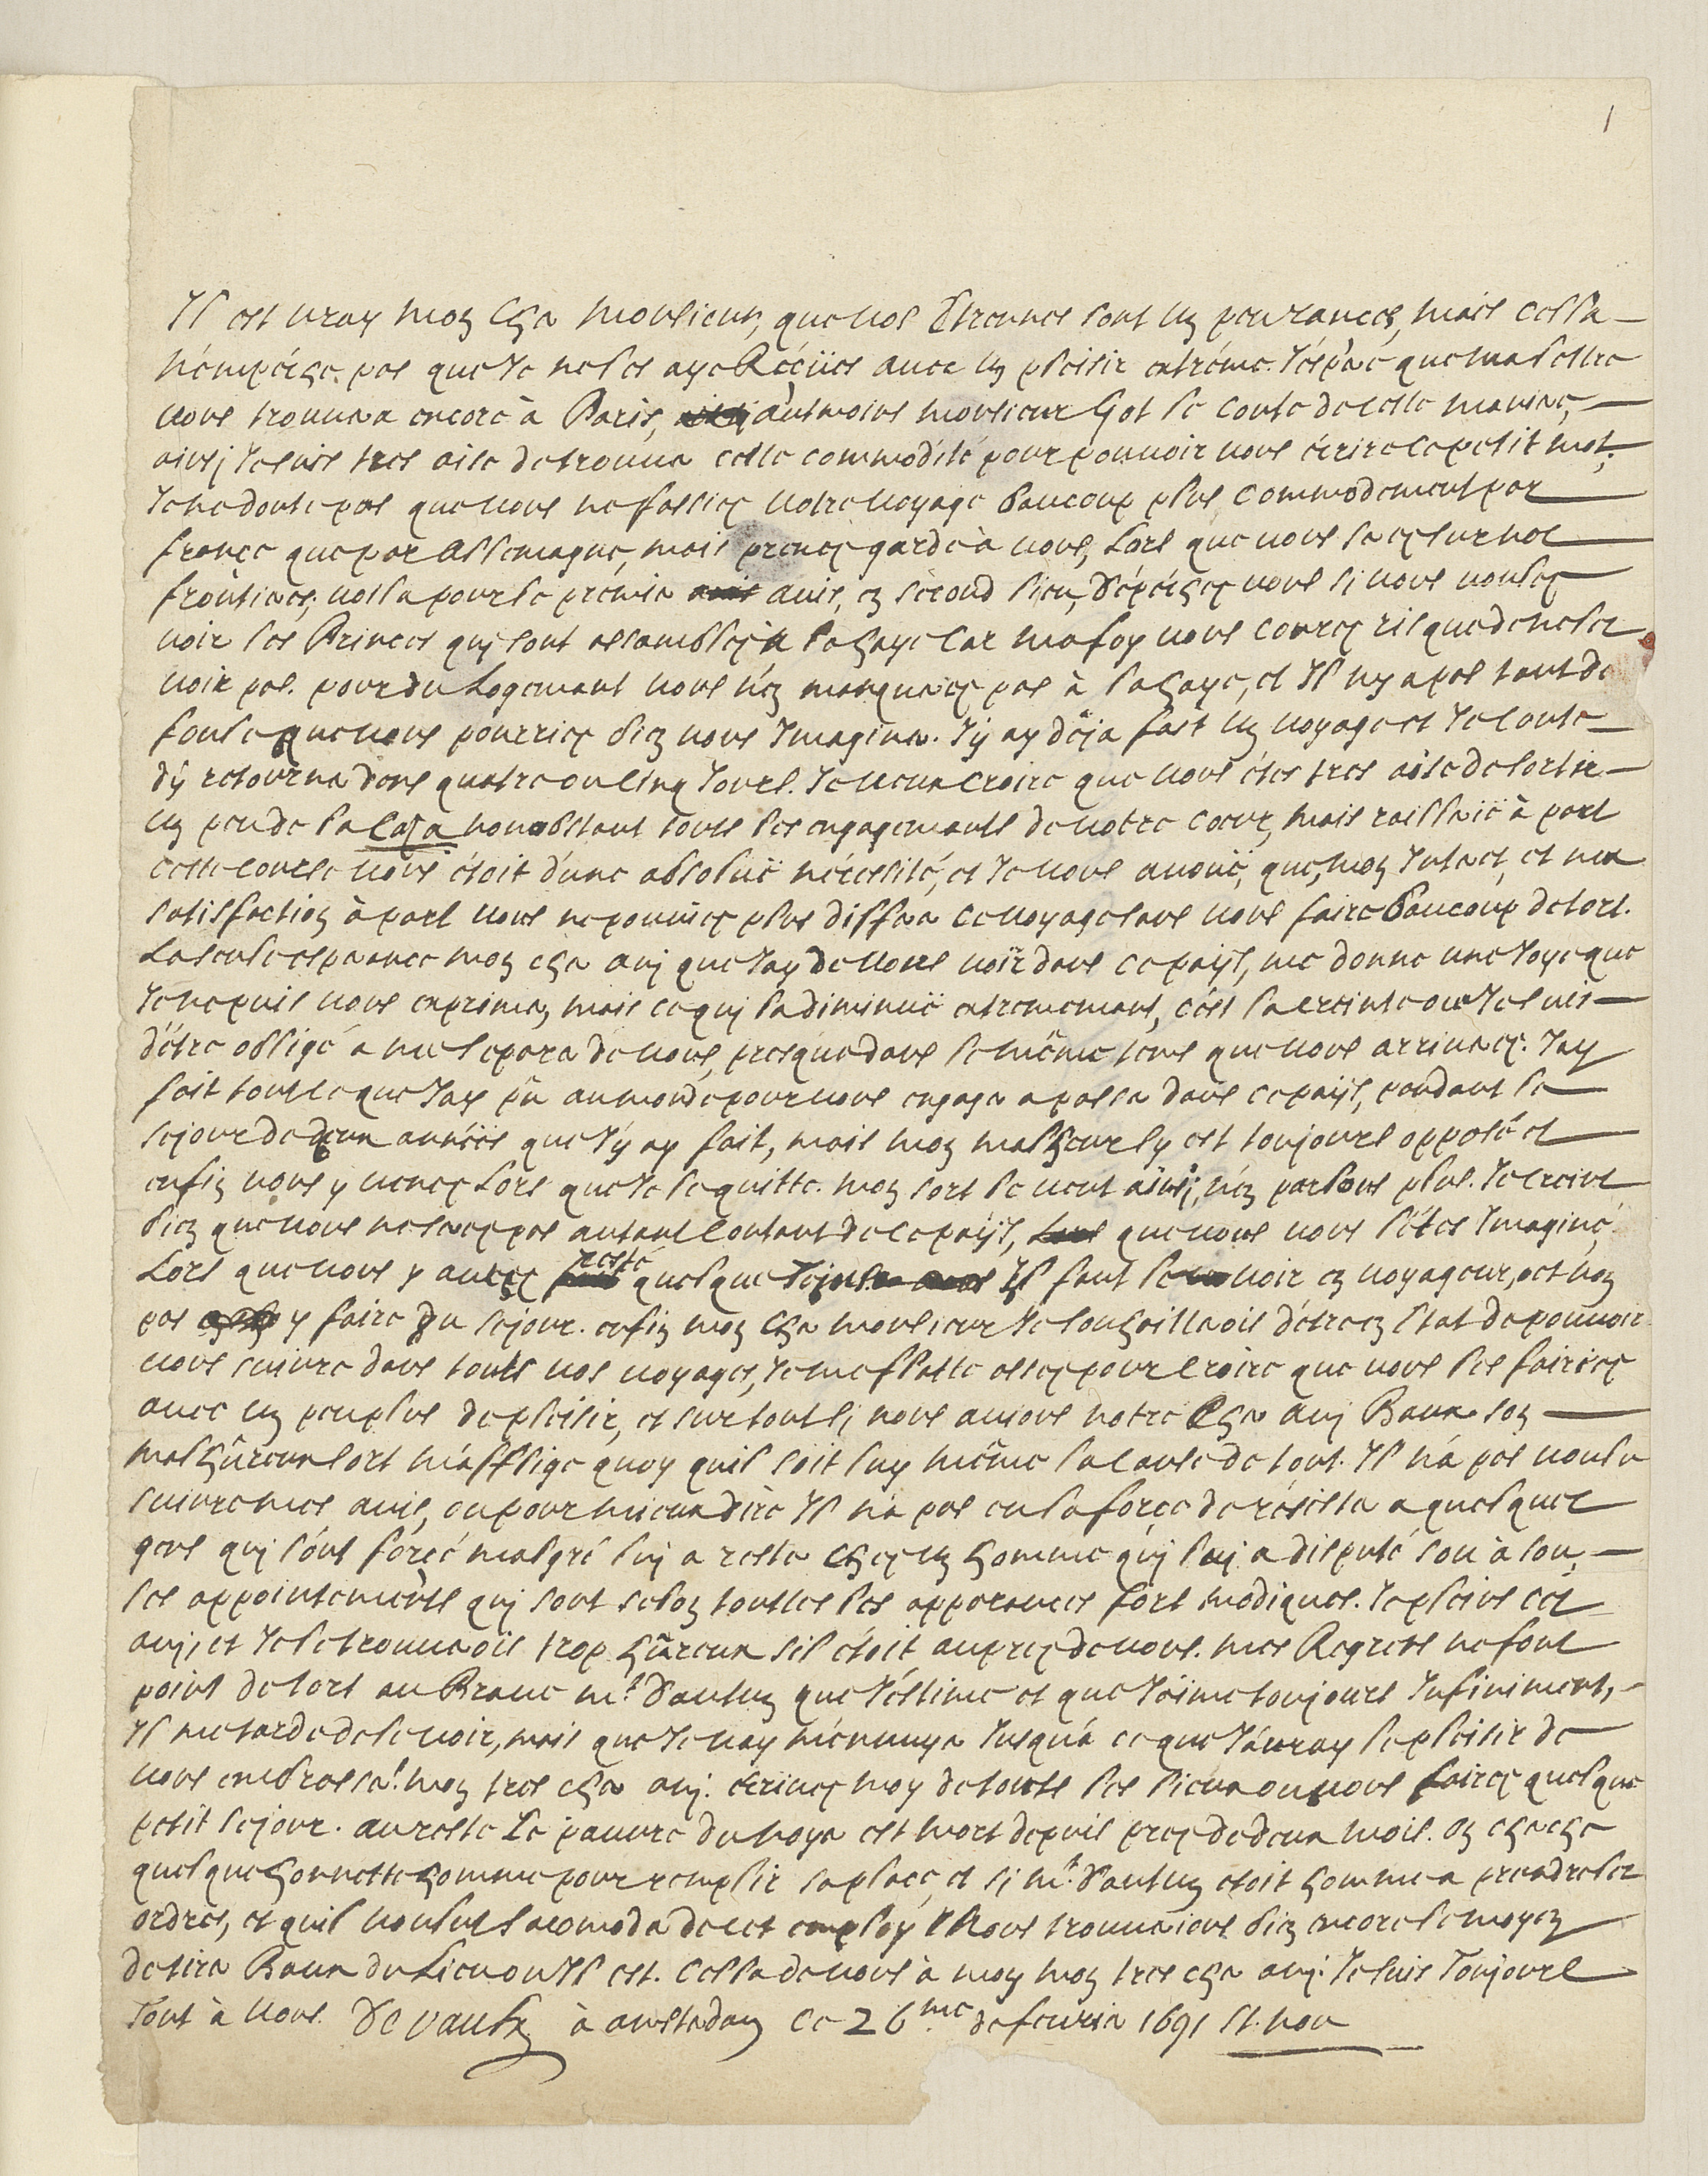 1
Il est vray mon cher monsieur, que vos Etrennes sont un peu rances, mais cella
n'empéche pas que Je ne les aye Reçües avec un plaisir extréme. J'espere que ma lettre
vous trouvera encore à Paris, autmoins monsieur Got le conte de cette maniere,
ainsj Je suis tres aise de trouver cette commodité pour pouvoir vous écrire ce petit mot.
Je ne doute pas que vous ne fassiez votre voyage Baucoup plus commodement par
france que par allemagne, mais prenez garde à vous, Lors que vous serez sur nos
frontieres, voilla pour le prémier avis, en sécond lieu, dépéchez vous si vous voulez
voir les Princes quj sont assamblez a la haye car ma foy vous courez risque de ne les
voir pas. pour du Logemant vous n'en manquerez pas à la haye, et Il ny a pas tant de
foule que vous pourriez bien vous Imaginer. J'y ay déja fait un voyage et Je conte
d'y retourner dans quatre ou cinq Jours. Je veux croire que vous étes tres aise de sortir
un peu de la casa nonobstant touts les engagemants de votre cœur, mais raillerië à part
cette course vous étoit d'une absoluë nécessité, et Je vous avouë, que, mon Interet, et ma
satisfaction à part vous ne pouviez plus differer ce voyage sans vous faire Baucoup de tort.
La seule esperance mon cher amj que J'ay de vous voir dans ce païs, me donne une Joye que
Je ne puis vous exprimer, mais ce quj la diminuë extrememant, c'est la crainte ou Je suis
d'étre obligé a me separer de vous, presque dans le même tems que vous arriverez. J'ay
fait tout ce que J'ay pû au monde pour vous engager a passer dans ce païs, pendant le
sejour de deux années que J'y ay fait, mais mon malheur s'y est toujours opposé et
enfin vous y venez Lors que Je le quitte. mon sort le veut ainsi, n'en parlons plus. Je crains
bien que vous ne serez pas autant contant de ce païs, que vous vous l'étes Imaginé
Lors que vous y aurez resté quelque Il faut le voir en voyageur, et non
pas y faire du sejour. enfin mon cher monsieur Je souhaitterois d'étre en état de pouvoir
vous suivre dans touts vos voyages, Je me flatte assez pour croire que vous les fairiez
avec un peu plus de plaisir, et sur tout si nous avions notre cher amj Baux son
malhûreux sort m'afflige quoy qu'il soit luy même la cause de tout. Il n'a pas voulu
suivre mes avis, ou pour mieux dire Il n'a pas eu la force de résister a quelques
gens quj l'ont forcé malgré luj a rester chez un homme quj luj a disputé sou à sou,
les appointements quj sont selon touttes les apparances fort modiques. Je plains cet
amj, et Je le trouverois trop hûreux s'il étoit auprez de vous. mes Regrets ne font
point de tort au Brave mr. Dautun que J'estime et que J'aime toujours Infiniment,
Il me tarde de le voir, mais que Je vay m'ennuyer Jusqu'à ce que J'auray le plaisir de
vous embrasser! mon tres cher amj. écrivez moy de touts les lieux ou vous fairez quelque
petit sejour. au reste Le pauvre du noyer est mort depuis prez de deux mois. on cherche
quelque honnette homme pour remplir sa place, et si mr. Dautun etoit homme a prendre les
ordres, et quil voulut s'acomoder de cet employ Nous trouverions bien encore le moyen
de tirer Baux du Lieu ou Il est. cella de vous à moy mon tres cher amj. Je suis Toujours
Tout à vous. Devaulx à amsterdam ce 26me. de fevrier 1691 st. nou